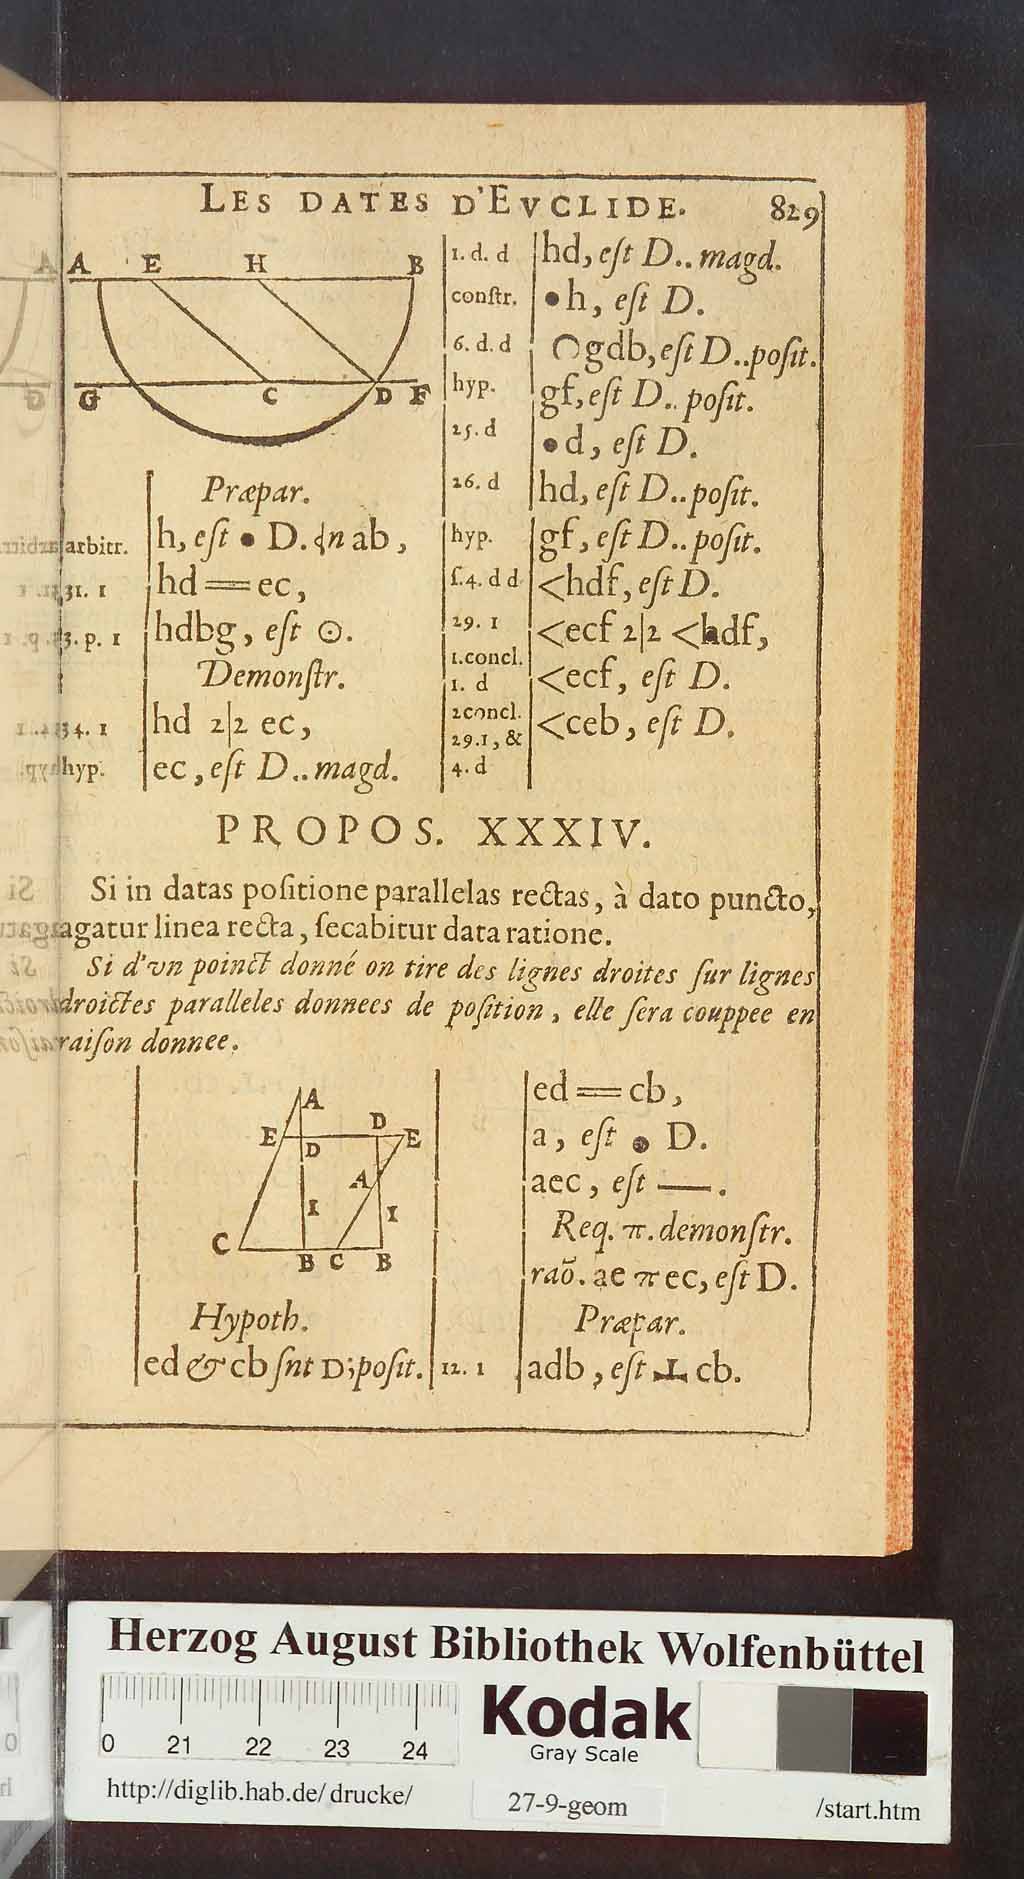 LES DATES D'EVCLIDE. 829
A E H B
G C D F
Præpar.
arbitr. h, eſt • D. ɖn ab,
31. 1 hd == ec,
3. p. 1 hdbg, eſt ⊙.
Demonſtr.
34. 1 hd 2|2 ec,
hyp. ec, eſt D.. magd.
1. d. d hd, eſt D.. magd.
conſtr. • h, eſt D.
6. d. d ◠gdb, eſt D..poſit.
hyp. gf, eſt D.. poſit.
25. d • d, eſt D.
26. d hd, eſt D..poſit.
hyp. gf, eſt D.. poſit.
ſ.4. d d <hdf, eſt D.
29. 1 <ecf 2|2 <hdf,
1.concl.
1. d <ecf, eſt D.
2concl. <ceb, eſt D.
29.1, &
4. d
PROPOS. XXXIV.
Si in datas poſitione parallelas rectas, à dato puncto,
agatur linea recta, ſecabitur data ratione.
Si d'vn poinct donné on tire des lignes droites ſur lignes
droictes paralleles donnees de poſition, elle ſera couppee en
raiſon donnee.
A
E D D E
A
I I
C B C B
Hypoth.
ed & cb ſnt D; poſit.
ed == cb,
a, eſt • D.
aec, eſt —.
Req. π. demonſtr.
raõ. ae π ec, eſt D.
Præpar.
12. 1 adb, eſt ⊥ cb.
Herzog August Bibliothek Wolfenbüttel
0 21 22 23 24
Kodak
Gray Scale
http://diglib.hab.de/drucke/ 27-9-geom /start.htm